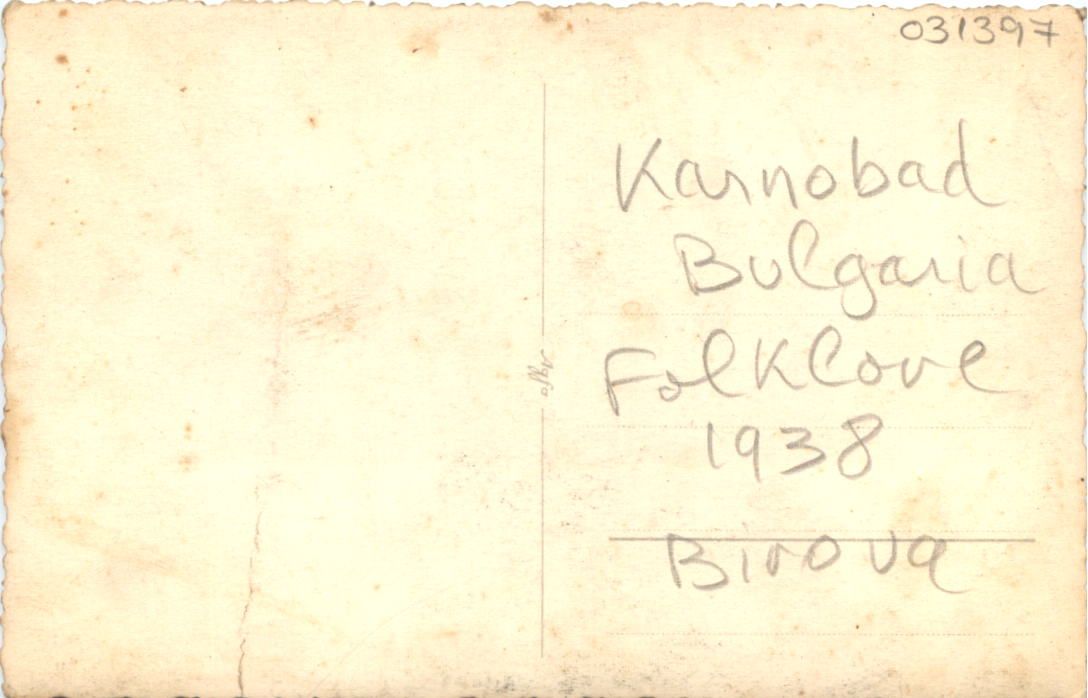 031397
Karnobad
Bulgaria
Agfa
Folklore
1938
Birova